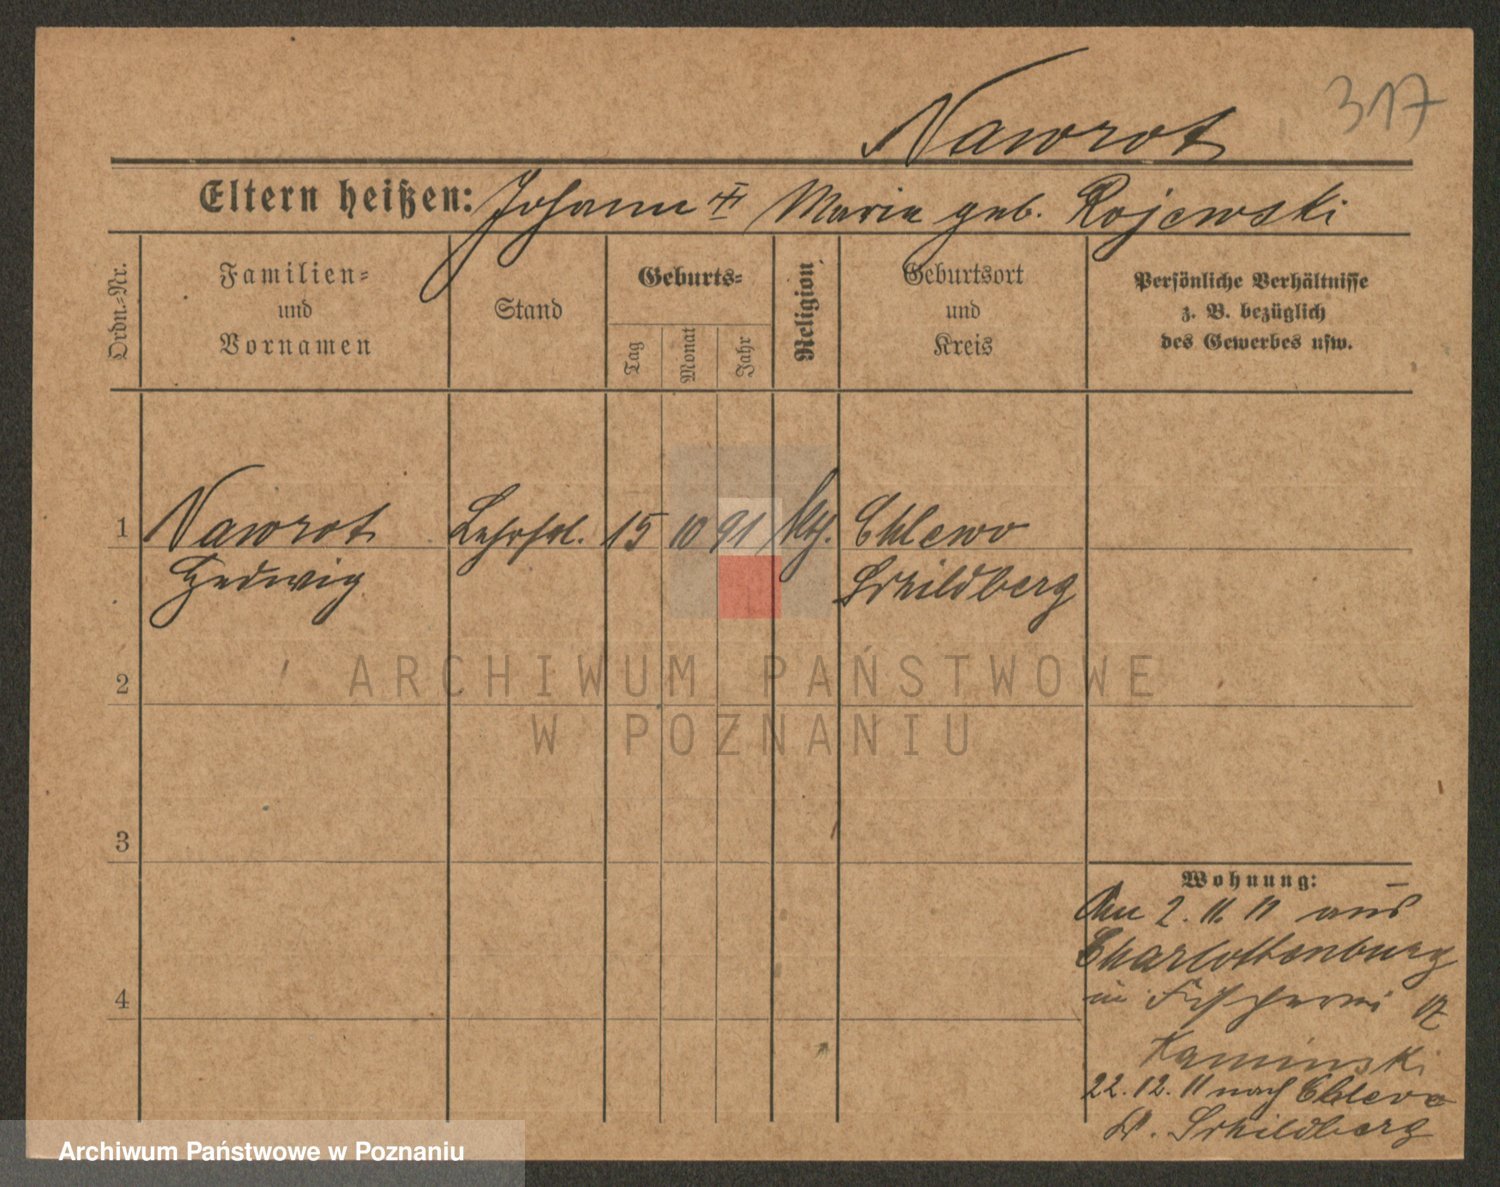 317
Nawrot
Eltern heißen: Johann Maria geb. Rojewski
Ordn.-Nr.
Familien-
und
Vornamen
Stand
Geburts-
Tag
Monat
Jahr
Religion
Geburtsort
und
Kreis
Persönliche Verhältnisse
z. B. bezüglich
des Gewerbes usw.
1 Nawrot 15 10 91 kth. Chlewo
Hedwig Schildberg
2
3
4
Wohnung:
2. 11. 11 aus
Charlottenburg
in Fischerei 17
Kaminski
22. 12. 11 nach Chlewo
Kr. Schildberg
ARCHIWUM PAŃSTWOWE
W POZNANIU
Archiwum Państwowe w Poznaniu